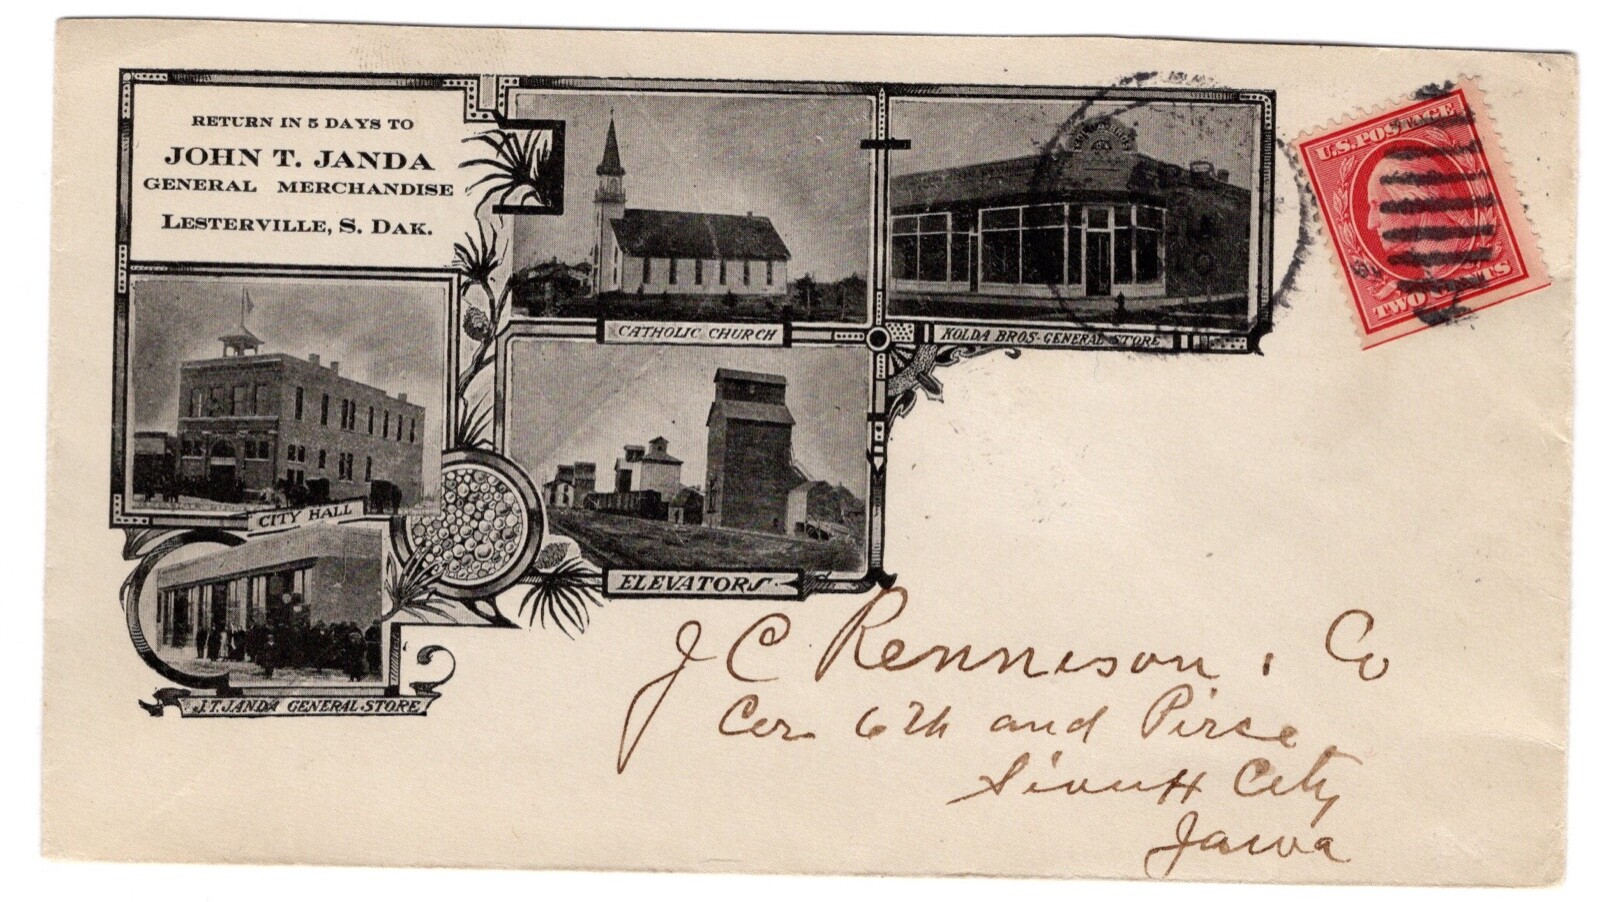 RETURN IN 5 DAYS TO
JOHN T. JANDA
GENERAL MERCHANDISE
LESTERVILLE, S. DAK.
CATHOLIC CHURCH
KOLDA BROS. GENERAL STORE
CITY HALL
ELEVATORS.
J.T. JANDA GENERAL STORE
U.S. POSTAGE
TWO CENTS
J C. Rennison, Co
Cor 6th and Pirce
Sioux City
Iowa